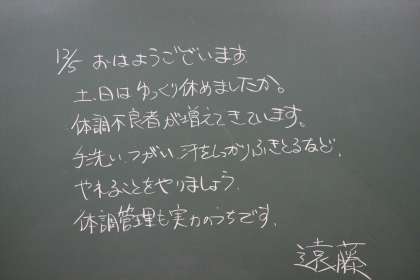 12/5 おはようございます
土、日はゆっくり休めましたか。
体調不良者が増えてきています。
手洗い、うがい、汗をしっかりふきとるなど、
やれることをやりましょう。
体調管理も実力のうちです。
遠藤